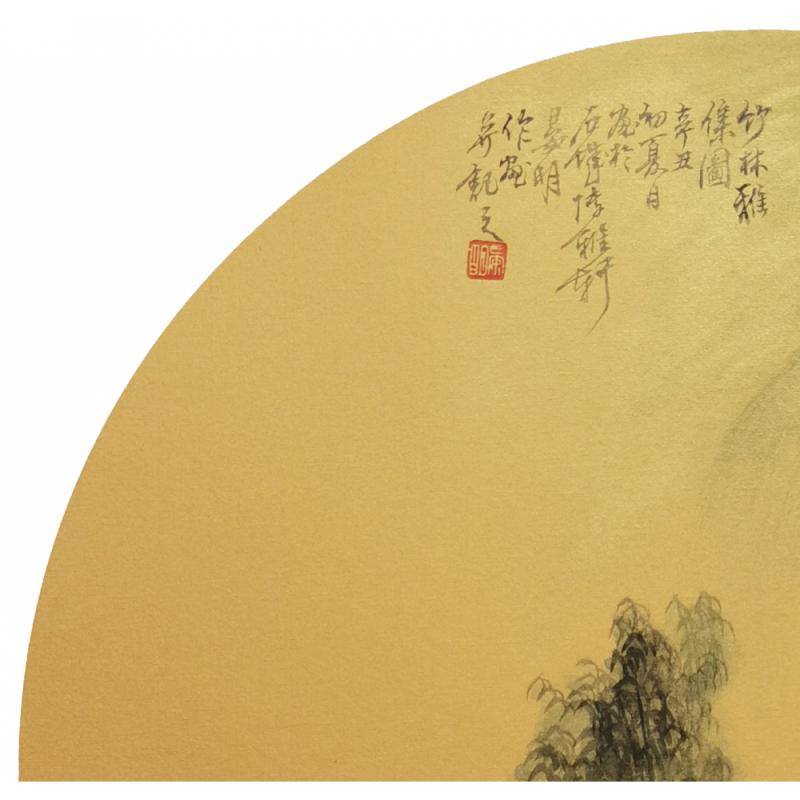 竹林雅
集圖
辛丑
初夏日
寫於
石
雅軒
明
作畫
并記之